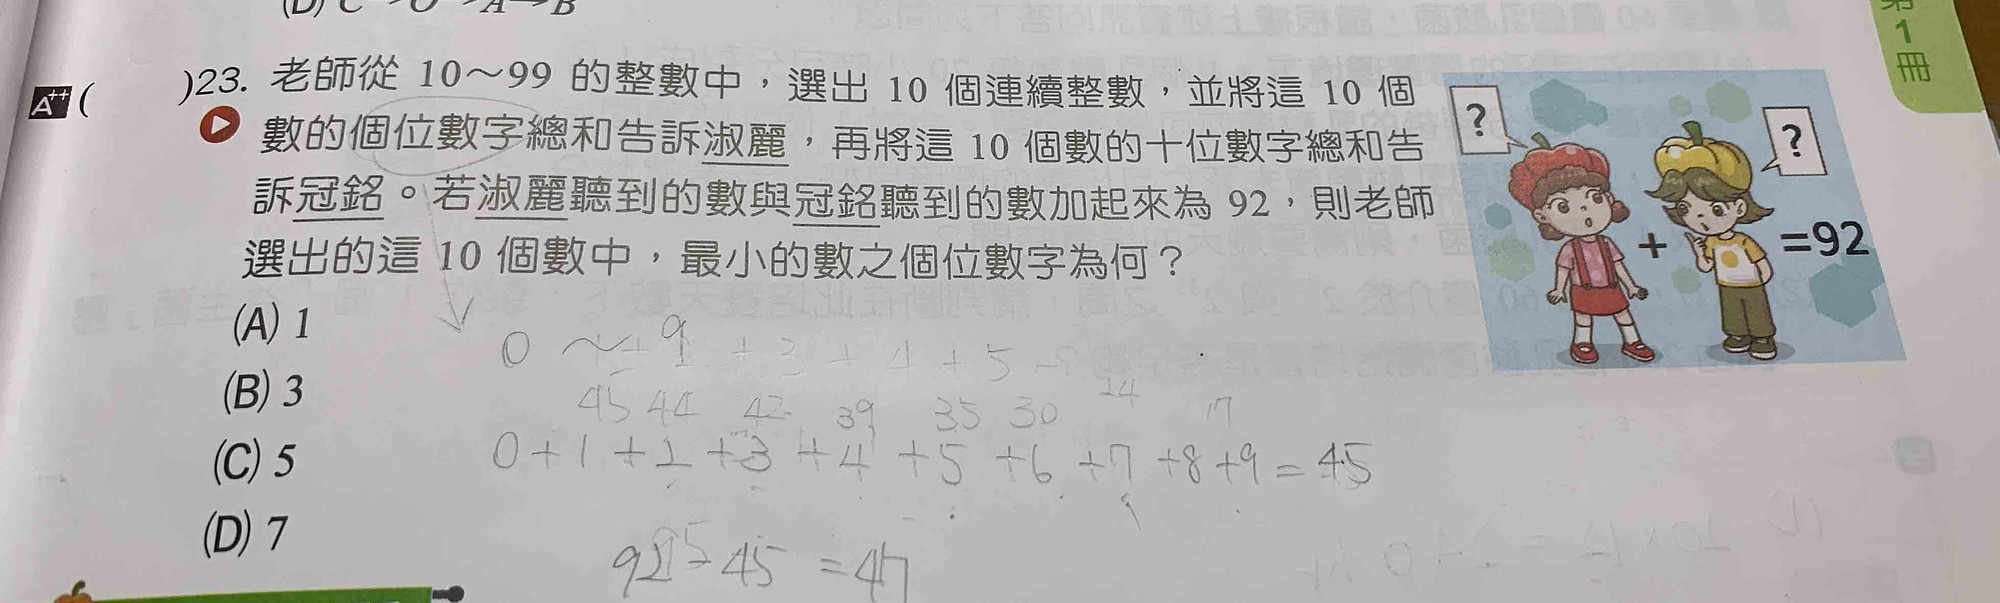 (D) C → O → A → B
第
1
冊
A++ (    )23. 老師從 10～99 的整數中，選出 10 個連續整數，並將這 10 個
數的個位數字總和告訴淑麗，再將這 10 個數的十位數字總和告
訴冠銘。若淑麗聽到的數與冠銘聽到的數加起來為 92，則老師
選出的這 10 個數中，最小的數之個位數字為何？
(A) 1
(B) 3
(C) 5
(D) 7
?
?
+
=92
0 ～ 9
+ 3 + 4 + 5
45 44 42 39 35 30 24 17
0+1+2+3+4+5+6+7+8+9=45
92-45=47